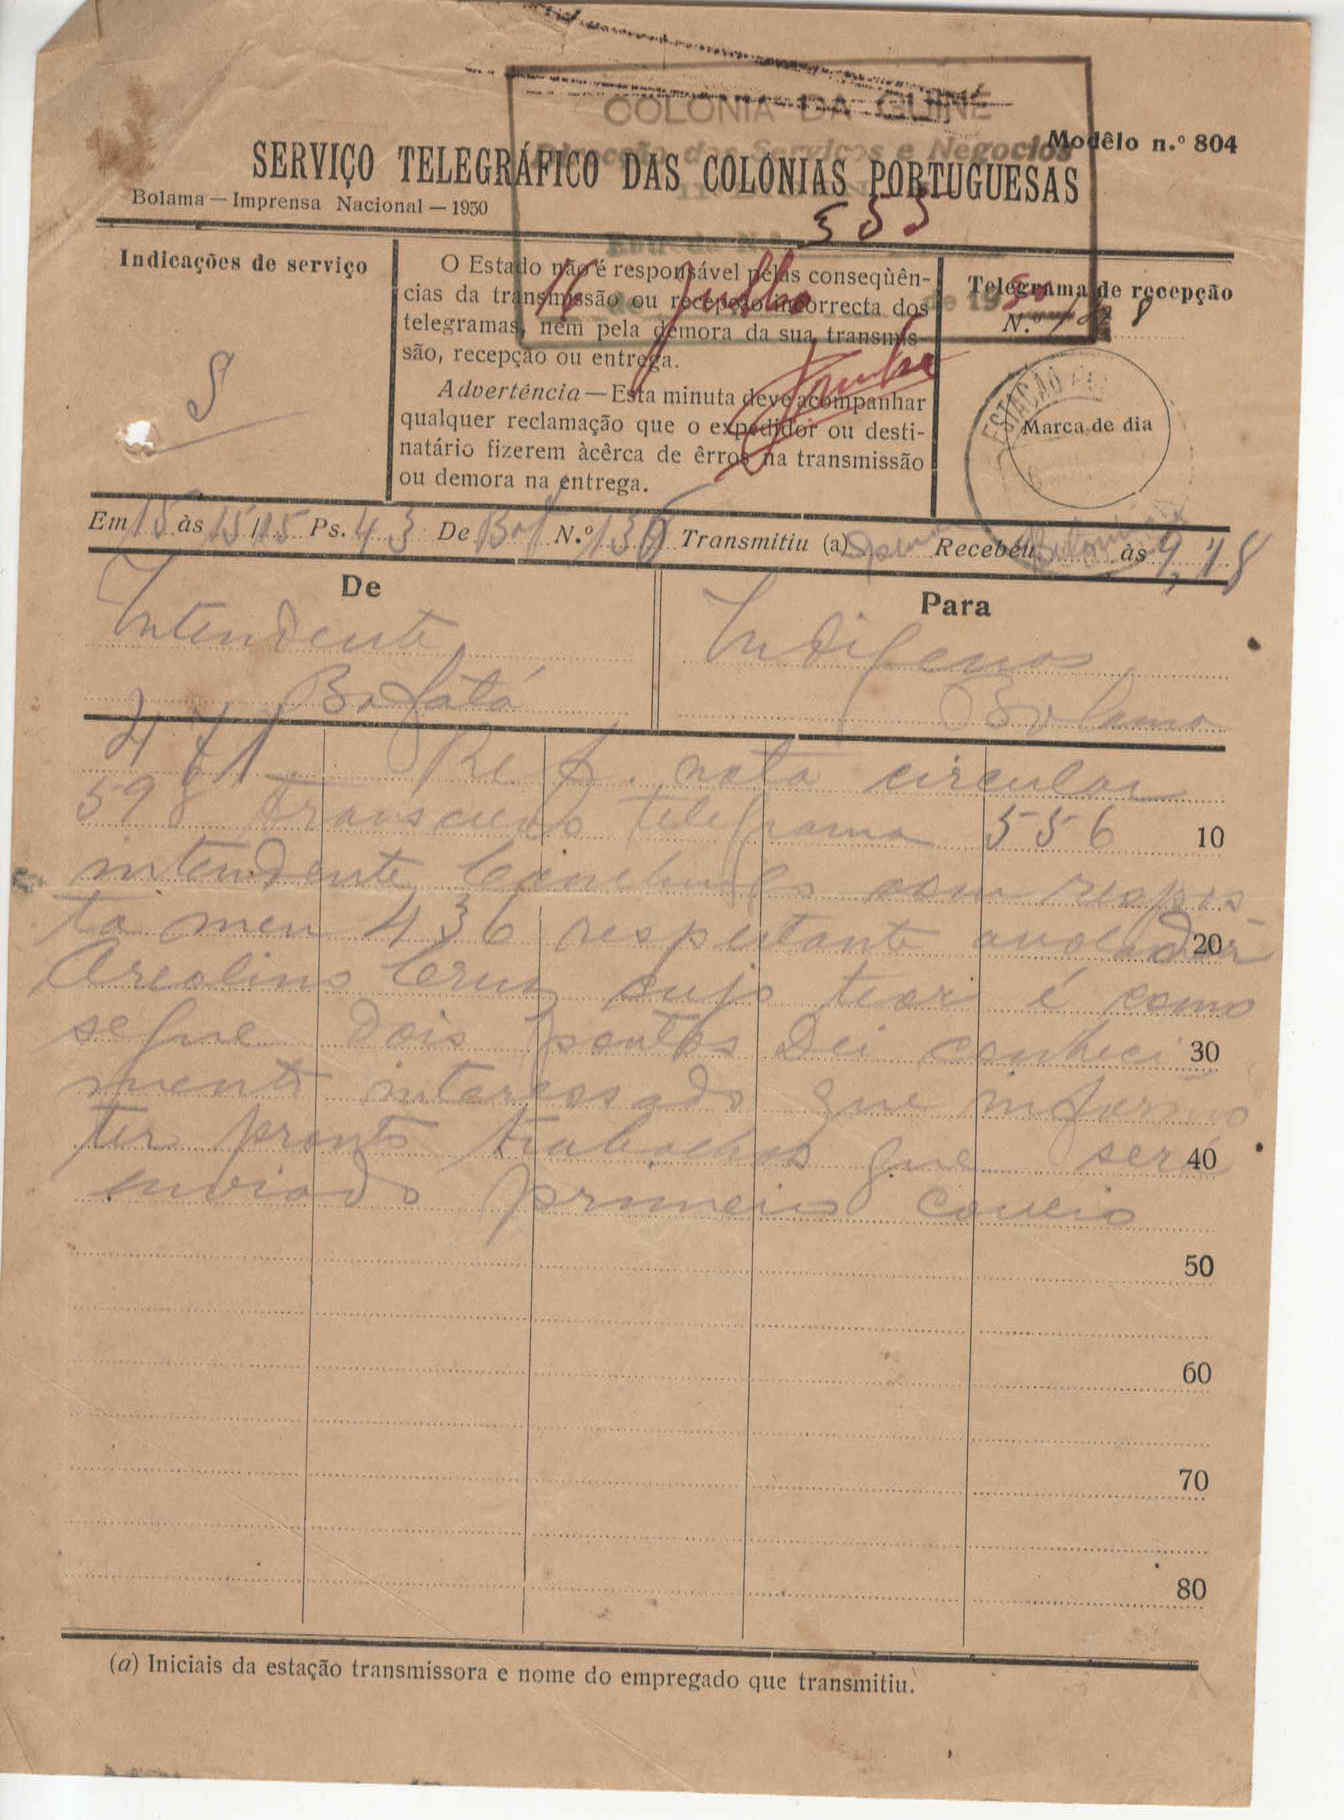 COLONIA DA GUINÉ
Direcção dos Serviços e Negocios
Modêlo n.º 804
SERVIÇO TELEGRÁFICO DAS COLÓNIAS PORTUGUESAS
Bolama — Imprensa Nacional — 1930
555
16 Julho de 1930
Indicações de serviço
S
O Estado não é responsável pelas conseqùên-
cias da transmissão ou recepção incorrecta dos
telegramas, nem pela demora da sua transmis-
são, recepção ou entrega.
Advertência — Esta minuta deve acompanhar
qualquer reclamação que o expedidor ou desti-
natário fizerem àcêrca de êrros na transmissão
ou demora na entrega.
Telegrama de recepção
N.º
ESTAÇÃO
Marca de dia
Em 15 às 15/15 Ps. 43 De Baf N.º Transmitiu (a) Recebeu às 9,18
De
Intendente
Bafatá
Para
Indigenas
Bolama
471 Ref. nota circular
598 transcrevo telegrama 556 10
intendente Canchungo com respos-
ta meu 436 respeitante 20
Arcolino Cruz cujo teor é como
segue dois pontos Dei conheci 30
mento interessado que informou
ter pronto trabalhos que será 40
enviado primeiro correio
50
60
70
80
(a) Iniciais da estação transmissora e nome do empregado que transmitiu.